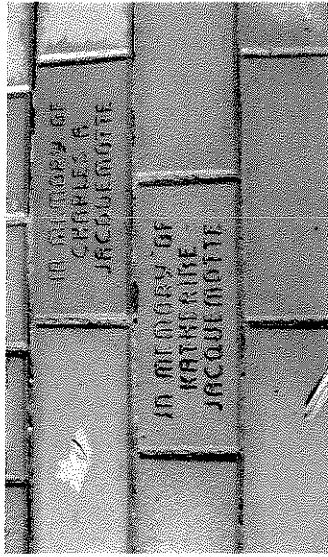 IN MEMORY OF
CHARLES A
JACQUEMOTTE
IN MEMORY OF
KATHERINE
JACQUEMOTTE